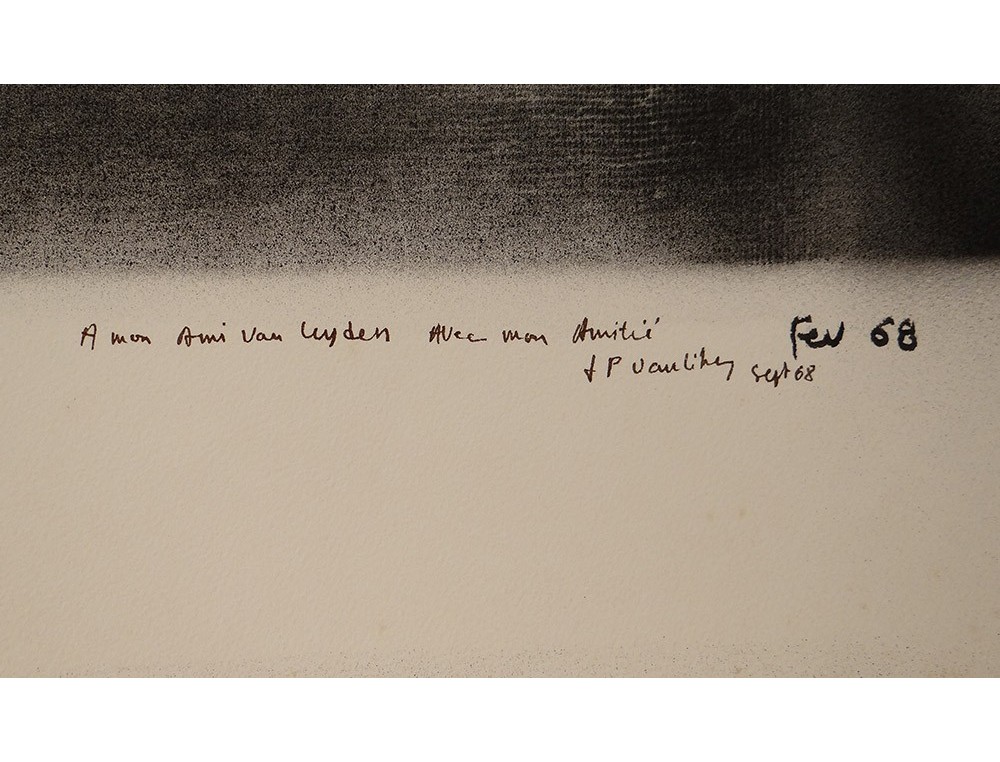 A mon Ami van Leyden Avec mon Amitié Fev 68
J P Vanlithey Sept 68